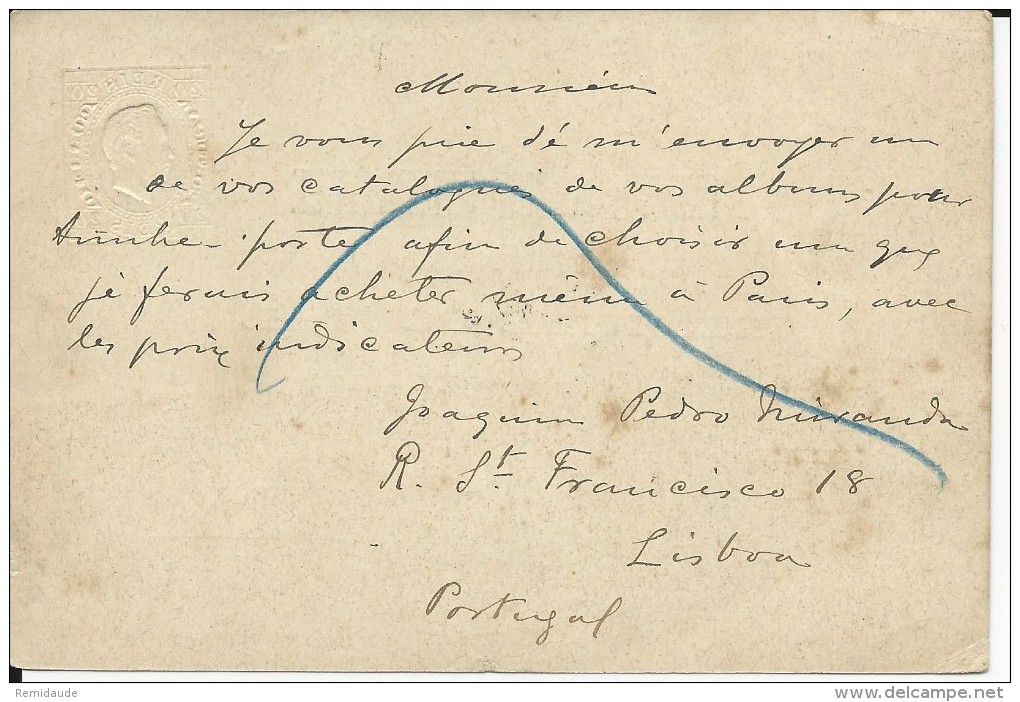 Monsieur
Je vous prie de m'envoyer un
de vos catalogues de vos albums pour
timbre-poste afin de choisir un que
je ferais acheter même à Paris, avec
les prix indicateurs
Joaquim Pedro Miranda
R. St. Francisco 18
Lisboa
Portugal
Remidaude
www.delcampe.net